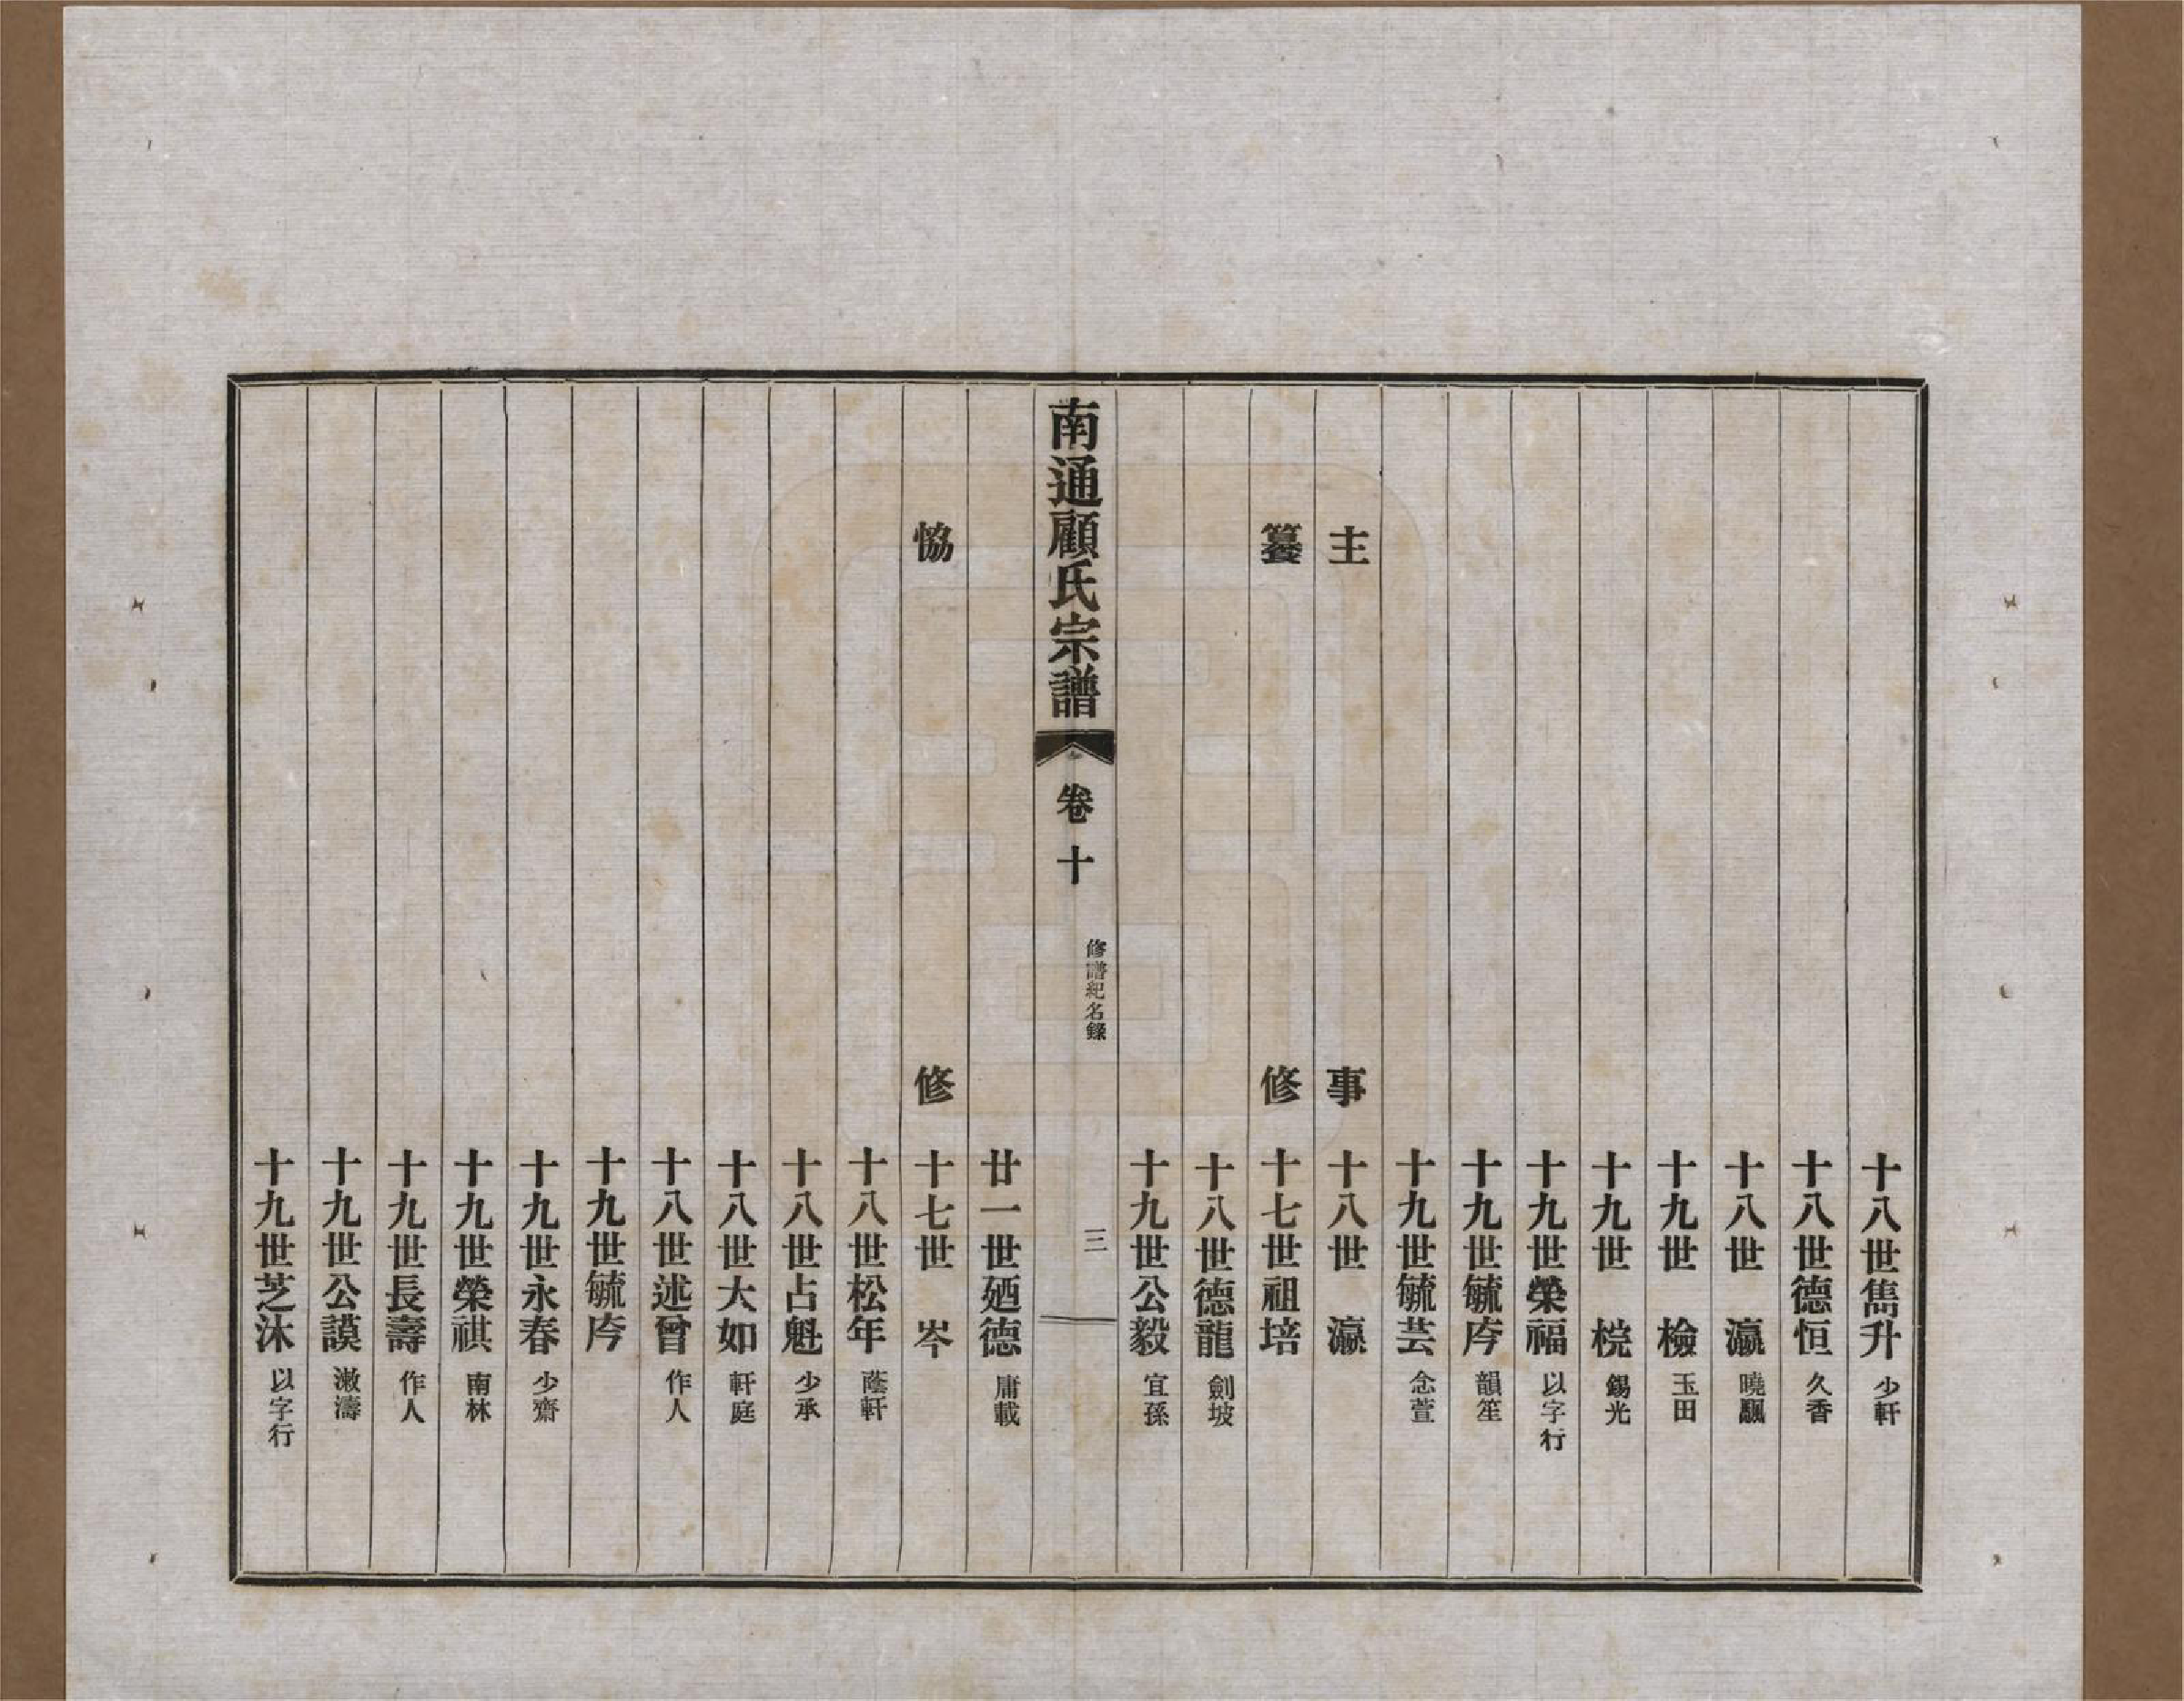 十八世雋升 少軒
十八世德恒 久香
十八世 瀛 曉颿
十九世 檢 玉田
十九世 梡 錫光
十九世榮福 以字行
十九世毓庈 韻笙
十九世毓芸 念萱
主 事 十八世 瀛
纂 修 十七世祖培
十八世德龍 劍坡
十九世公毅 宜孫
南通顧氏宗譜 卷十 修譜紀名錄 三
廿一世廼德 庸載
恊 修 十七世 岑
十八世松年 蔭軒
十八世占魁 少承
十八世大如 軒庭
十八世述曾 作人
十九世毓庈
十九世永春 少齋
十九世榮祺 南林
十九世長壽 作人
十九世公謨 漱濤
十九世芝沐 以字行